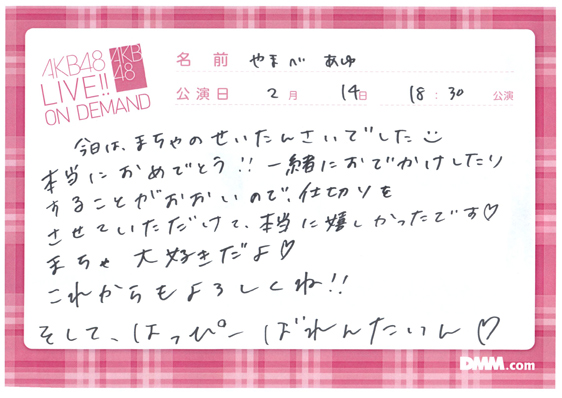 AKB48
LIVE!!
ON DEMAND
AKB
48
名前 やまべ あゆ
公演日 2月 14日 18:30 公演
今日は、まちゃのせいたんさいでした
本当におめでとう!! 一緒におでかけしたり
することがおおいので、仕切りを
させていただけて、本当に嬉しかったです♡
まちゃ 大好きだよ♡
これからもよろしくね!!
そして、はっぴー ばれんたいん♡
DMM.com